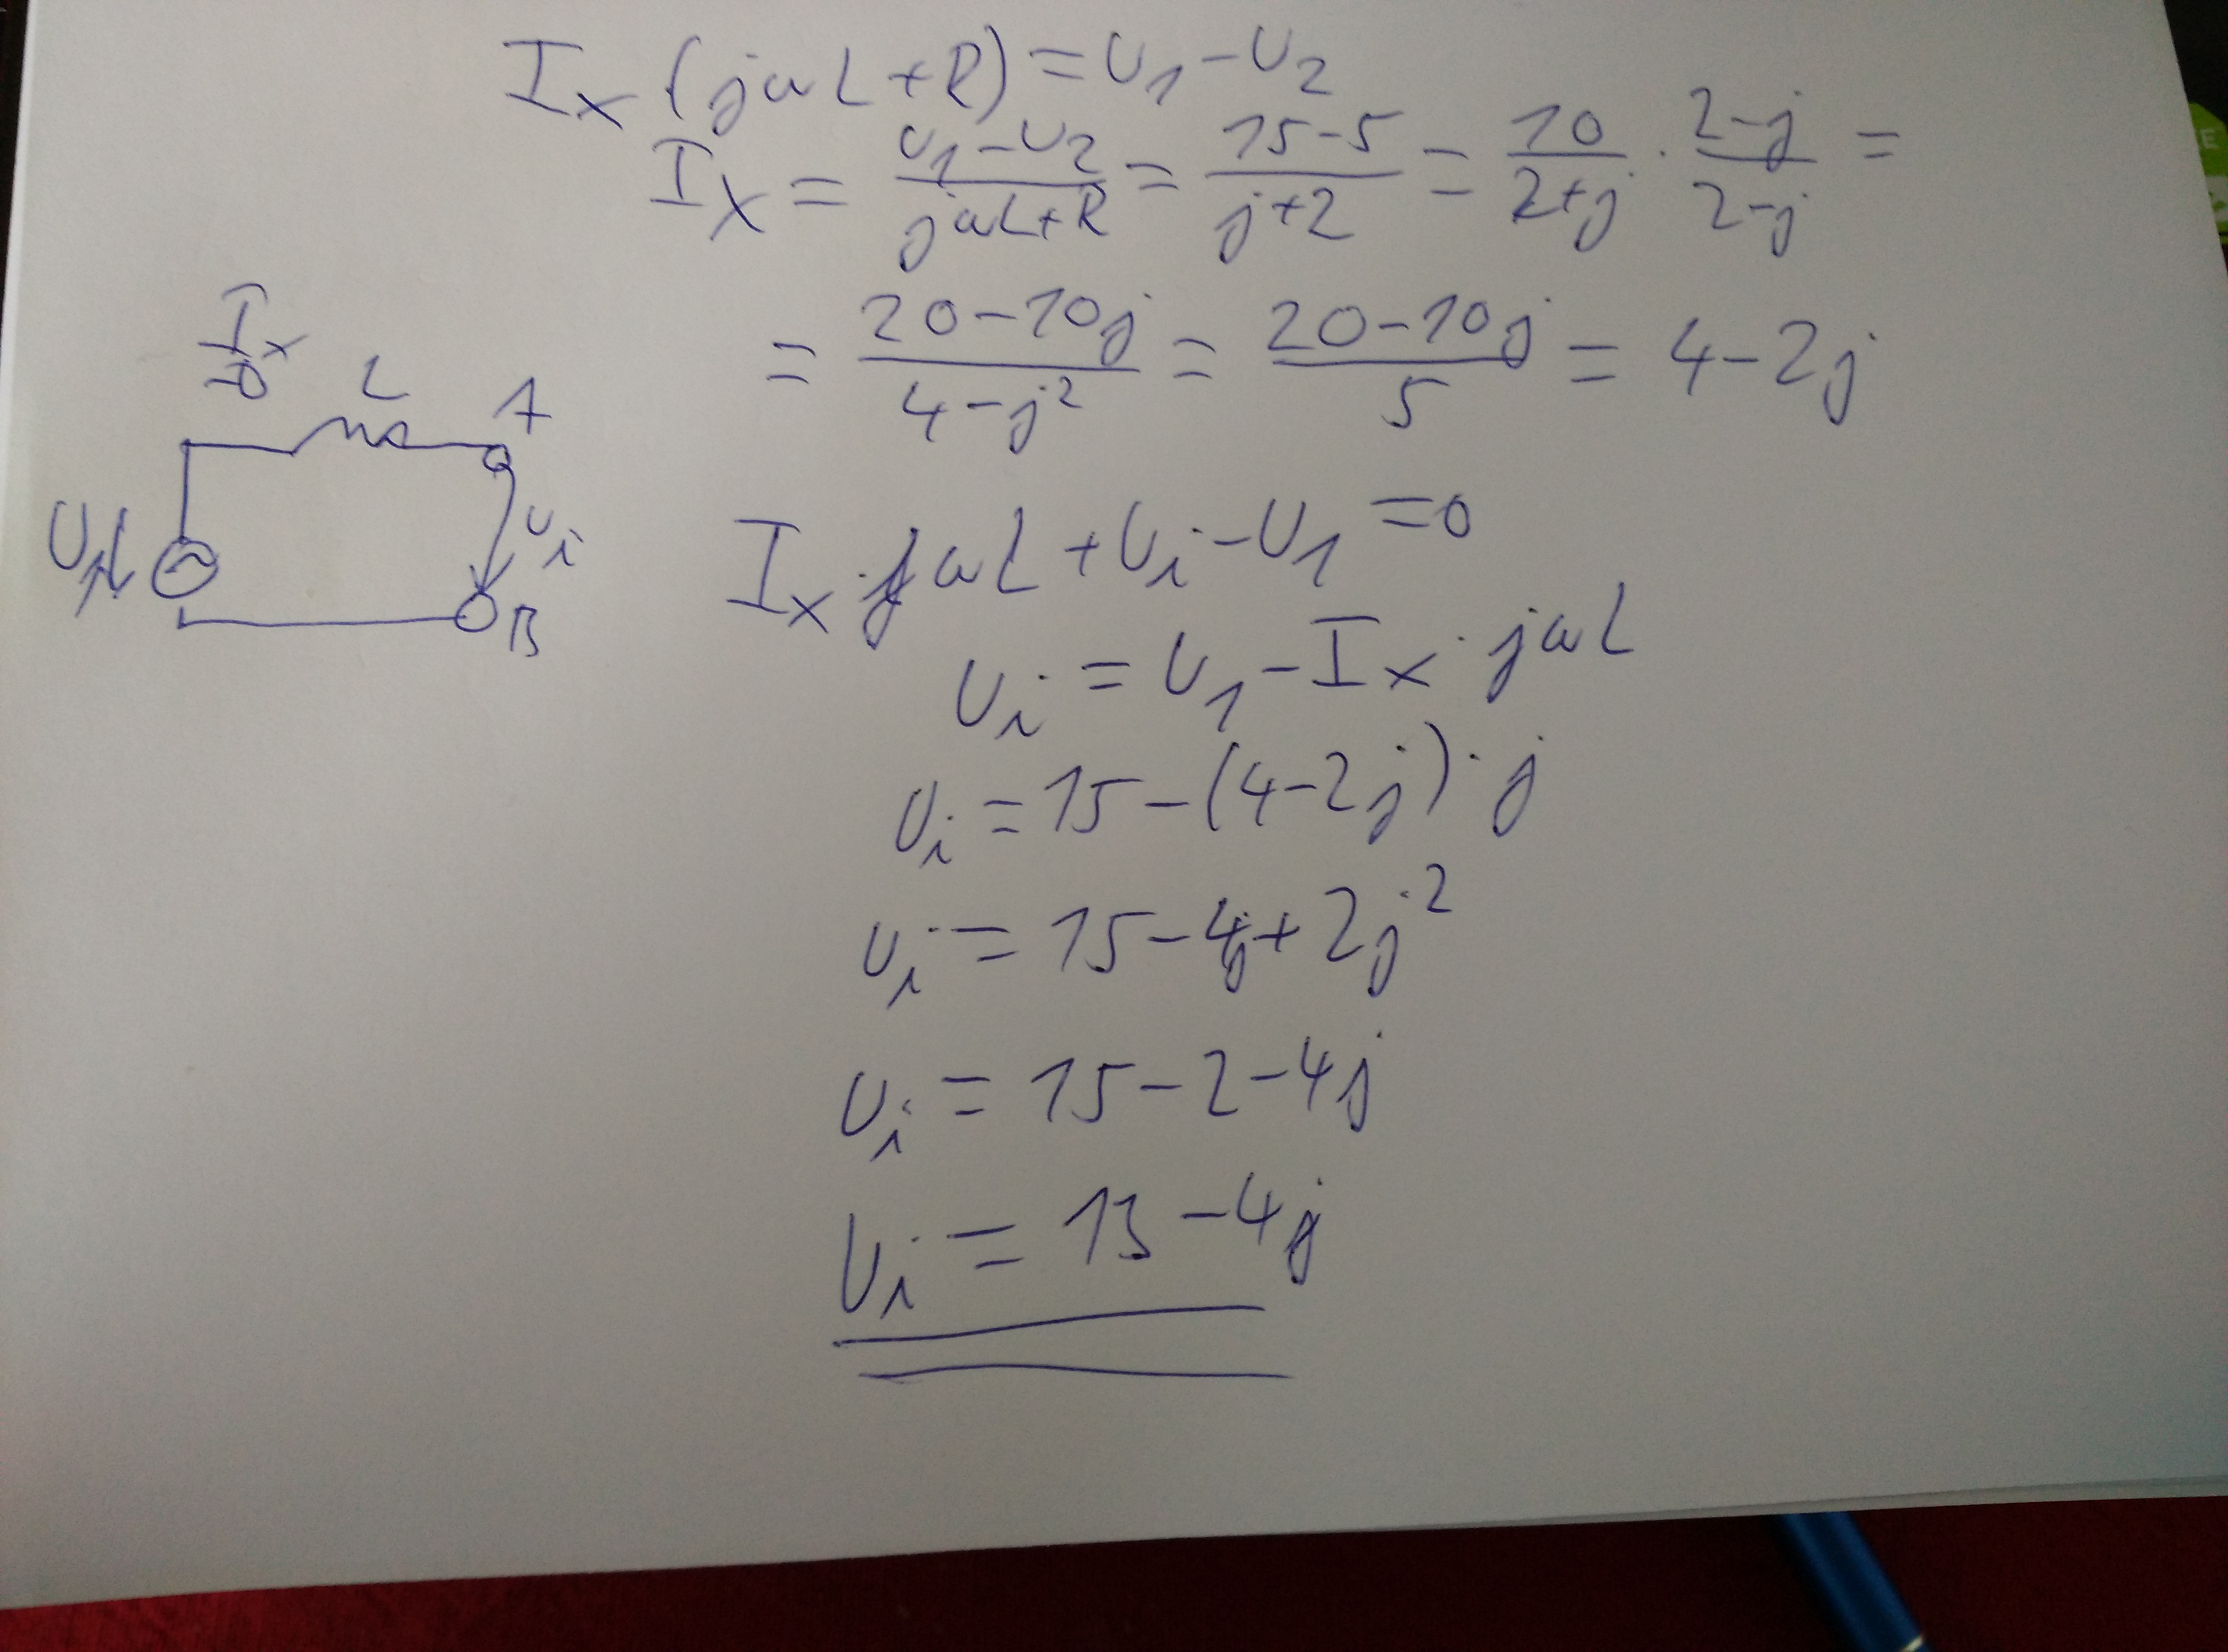 I_x (jωL+R) = U_1 - U_2
I_x = (U_1 - U_2)/(jωL+R) = (15-5)/(j+2) = 10/(2+j) · (2-j)/(2-j) =
= (20-10j)/(4-j²) = (20-10j)/5 = 4-2j
I_x
L
A
U_1
U_i
B
I_x · jωL + U_i - U_1 = 0
U_i = U_1 - I_x · jωL
U_i = 15 - (4-2j) · j
U_i = 15 - 4j + 2j²
U_i = 15 - 2 - 4j
U_i = 13 - 4j